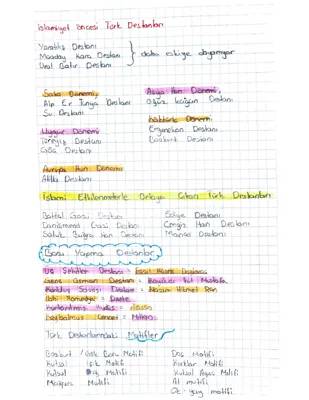 İslamiyet öncesi Türk Destanları
Yaratılış Destanı
Maaday Kara Destanı } daha eskiye dayanıyor
Ural Batır Destanı
Saka Dönemi,
Alp Er Tunga Destanı
Şu Destanı
Asya Hun Dönemi
Oğuz Kağan Destanı
Uygur Dönemi
Türeyiş Destanı
Göç Destanı
Göktürk Dönemi
Ergenekon Destanı
Bozkurt Destanı
Avrupa Hun Dönemi
Attila Destanı
İslami Etkilenmelerle Ortaya Çıkan Türk Destanları
Battal Gazi Destanı
Danişmend Gazi Destanı
Satuk Buğra Han Destanı
Edige Destanı
Cengiz Han Destanı
Manas Destanı
Bazı Yapma Destanlar
Üç Şehitler Destanı = Fazıl Hüsnü Dağlarca
Genç Osman Destanı = Kayıkçı Kul Mustafa
Kurtuluş Savaşı Destanı = Nazım Hikmet Ran
İlahi Komedya = Dante
Kurtarılmış Kudüs = Tasso
Kaybolmuş Cennet = Milton
Türk Destanlarındaki Motifler
Bozkurt / Gök Börü Motifi
Kutsal Işık Motifi
Kutsal Motifi
Mağara Motifi
Düş Motifi
Kırklar Motifi
Kutsal Ağaç Motifi
At motifi
Ok-yay motifi